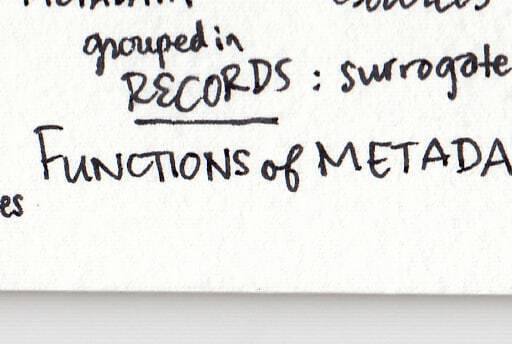 grouped in
RECORDS : surrogate
FUNCTIONS of METADA
es